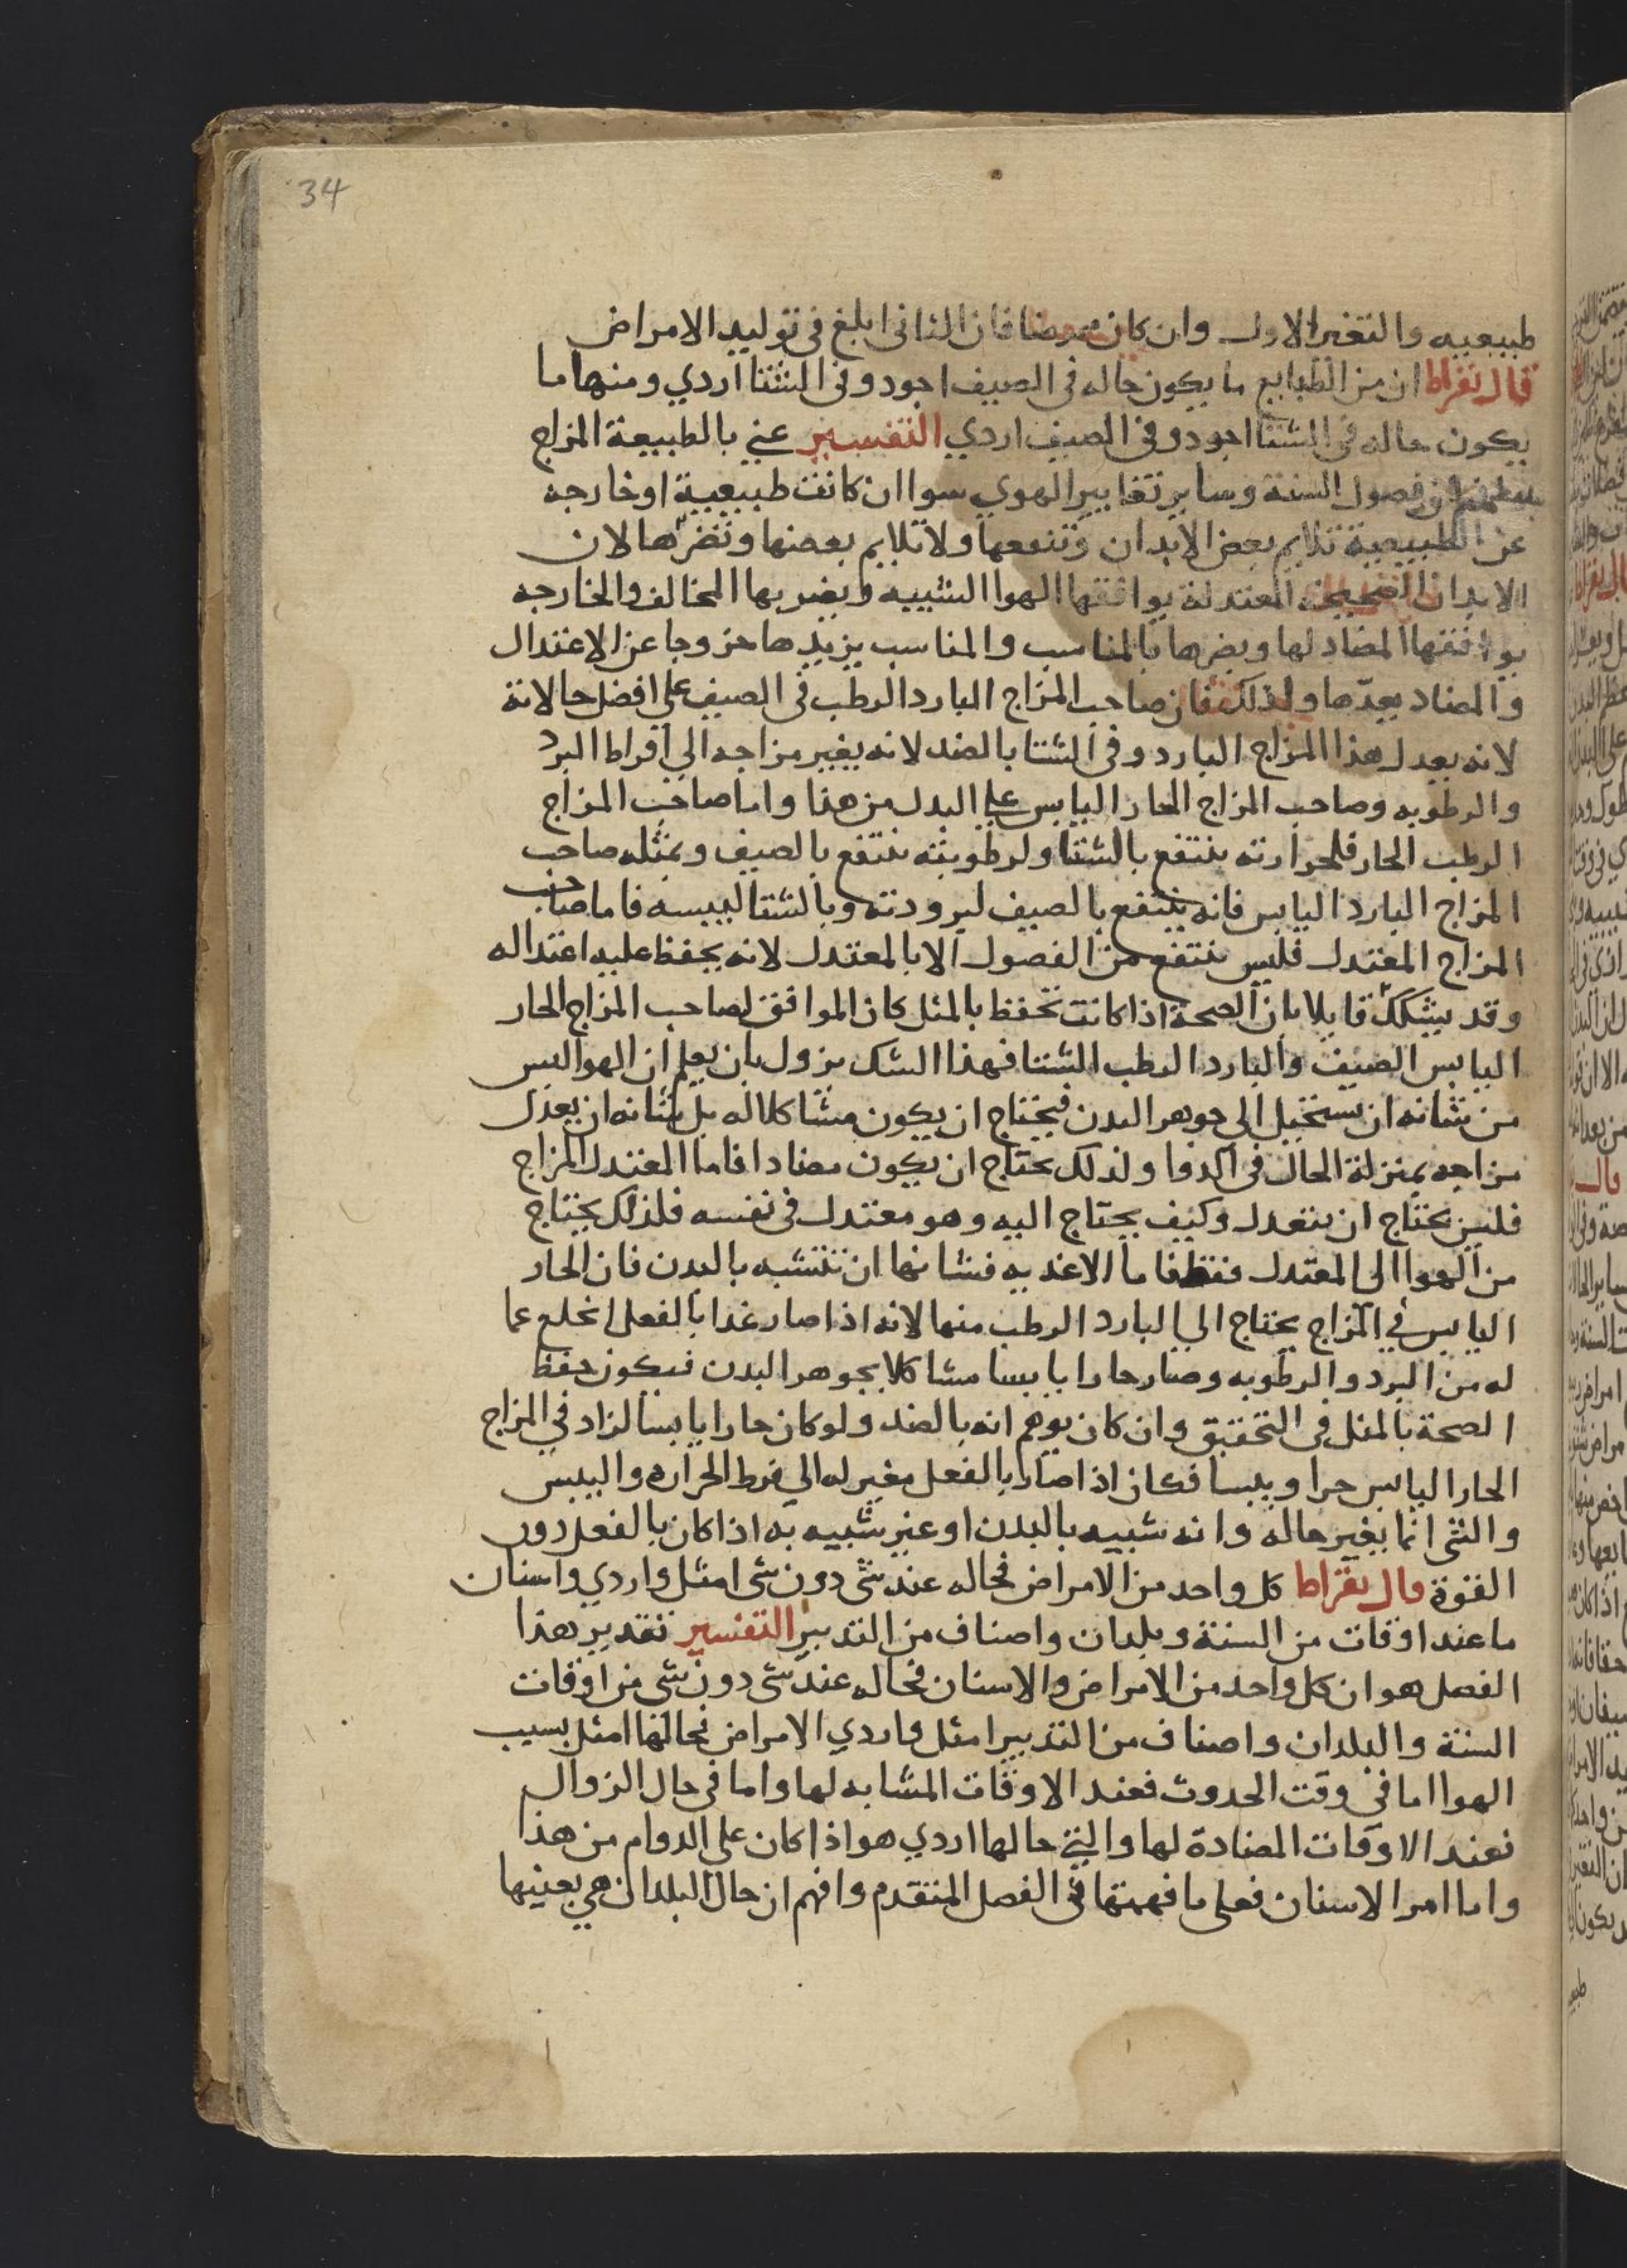 34
طبيعيه والتغير الاول وان كان ممرضا فان الثاني ابلغ في توليد الامراض
قال بقراط ان من الطبايع ما يكون حاله في الصيف اجود وفي الشتا اردي ومنها ما
يكون حاله في الشتا اجود وفي الصيف اردي التفسير عني بالطبيعة المزاج
فصول السنة وساير تغايير الهوي سوا ان كانت طبيعية او خارجه
عن الطبيعية تلايم بعض الابدان وتنفعها ولا تلايم بعضها وتضرها لان
الابدان الصحيحه المعتدلة يوافقها الهوا الشبيه ويضر بها المخالف والخارجه
يوافقها المضاد لها ويضرها بالمناسب والمناسب يزيدها خروجا عن الاعتدال
والمضاد يعدها ولذلك فان صاحب المزاج البارد الرطب في الصيف علي افضل حالاته
لانه يعدل هذا المزاج البارد وفي الشتا بالضد لانه يغير مزاجه الي افراط البرد
والرطوبه وصاحب المزاج الحار اليابس علي البدل من هذا واما صاحب المزاج
الرطب الحار فلحرارته ينتفع بالشتا ولرطوبته ينتفع بالصيف وبمثله صاحب
المزاج البارد اليابس فانه ينتفع بالصيف لبرودته وبالشتا لييبسه فاما صاحب
المزاج المعتدل فليس ينتفع من الفصول الا بالمعتدل لانه يحفظ عليه اعتداله
وقد يشكك قايلا بان الصحة اذا كانت تحفظ بالمثل كان الموافق لصاحب المزاج الحار
اليابس الصيف والبارد الرطب الشتا فهذا الشك يزول بان يعلم ان الهوا ليس
من شانه ان يستحيل الي جوهر البدن فيحتاج ان يكون مشاكلا له بل شانه ان يعدل
مزاجه بمنزلة الحال في الدوا ولذلك يحتاج ان يكون مضادا فاما المعتدل المزاج
فليس يحتاج ان يتعدل وكيف يحتاج اليه وهو معتدل في نفسه فلذلك يحتاج
من الهوا الي المعتدل فقط فاما الاغذيه فشانها ان تتشبه بالبدن فان الحار
اليابس في المزاج يحتاج الي البارد الرطب منها لانه اذا صار غدا بالفعل انخلع عما
له من البرد والرطوبه وصار حارا يابسا مشاكلا بجوهر البدن فيكون حفظ
الصحة بالمثل في التحقيق وان كان يوهم انه بالضد ولو كان حارا يابسا لزاد في المزاج
الحار اليابس حرا ويبسا فكان اذا صار بالفعل مغير له الي فرط الحراره واليبس
والشي انما يغير حاله وانه شبيه بالبدن او غير شبيه به اذا كان بالفعل دون
القوة قال بقراط كل واحد من الامراض فحاله عند شي دون شي امثل واردي واسنان
ما عند اوقات من السنة وبلدان واصناف من التدبير التفسير تقدير هذا
الفصل هو ان كل واحد من الامراض والاسنان فحاله عند شي دون شي من اوقات
السنة والبلدان واصناف من التدبير امثل واردي الامراض فحالها امثل بسبب
الهوا اما في وقت الحدوث فعند الاوقات المشابه لها واما في حال الزوال
فعند الاوقات المضادة لها والتي حالها اردي هو اذا كان علي الدوام من هذا
واما امر الاسنان فعلي ما فهمتها في الفصل المتقدم وافهم ان حال البلدان هي بعينها